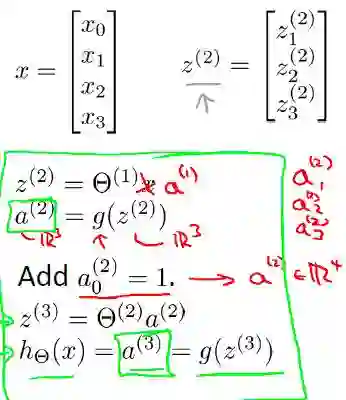 x = [x₀ x₁ x₂ x₃]
z⁽²⁾ = [z₁⁽²⁾ z₂⁽²⁾ z₃⁽²⁾]
z⁽²⁾ = Θ⁽¹⁾x a⁽¹⁾
a⁽²⁾ = g(z⁽²⁾)
ℝ³ ℝ³
a₁⁽²⁾
a₂⁽²⁾
a₃⁽²⁾
Add a₀⁽²⁾ = 1. → a⁽²⁾ ∈ ℝ⁴
z⁽³⁾ = Θ⁽²⁾a⁽²⁾
h_Θ(x) = a⁽³⁾ = g(z⁽³⁾)